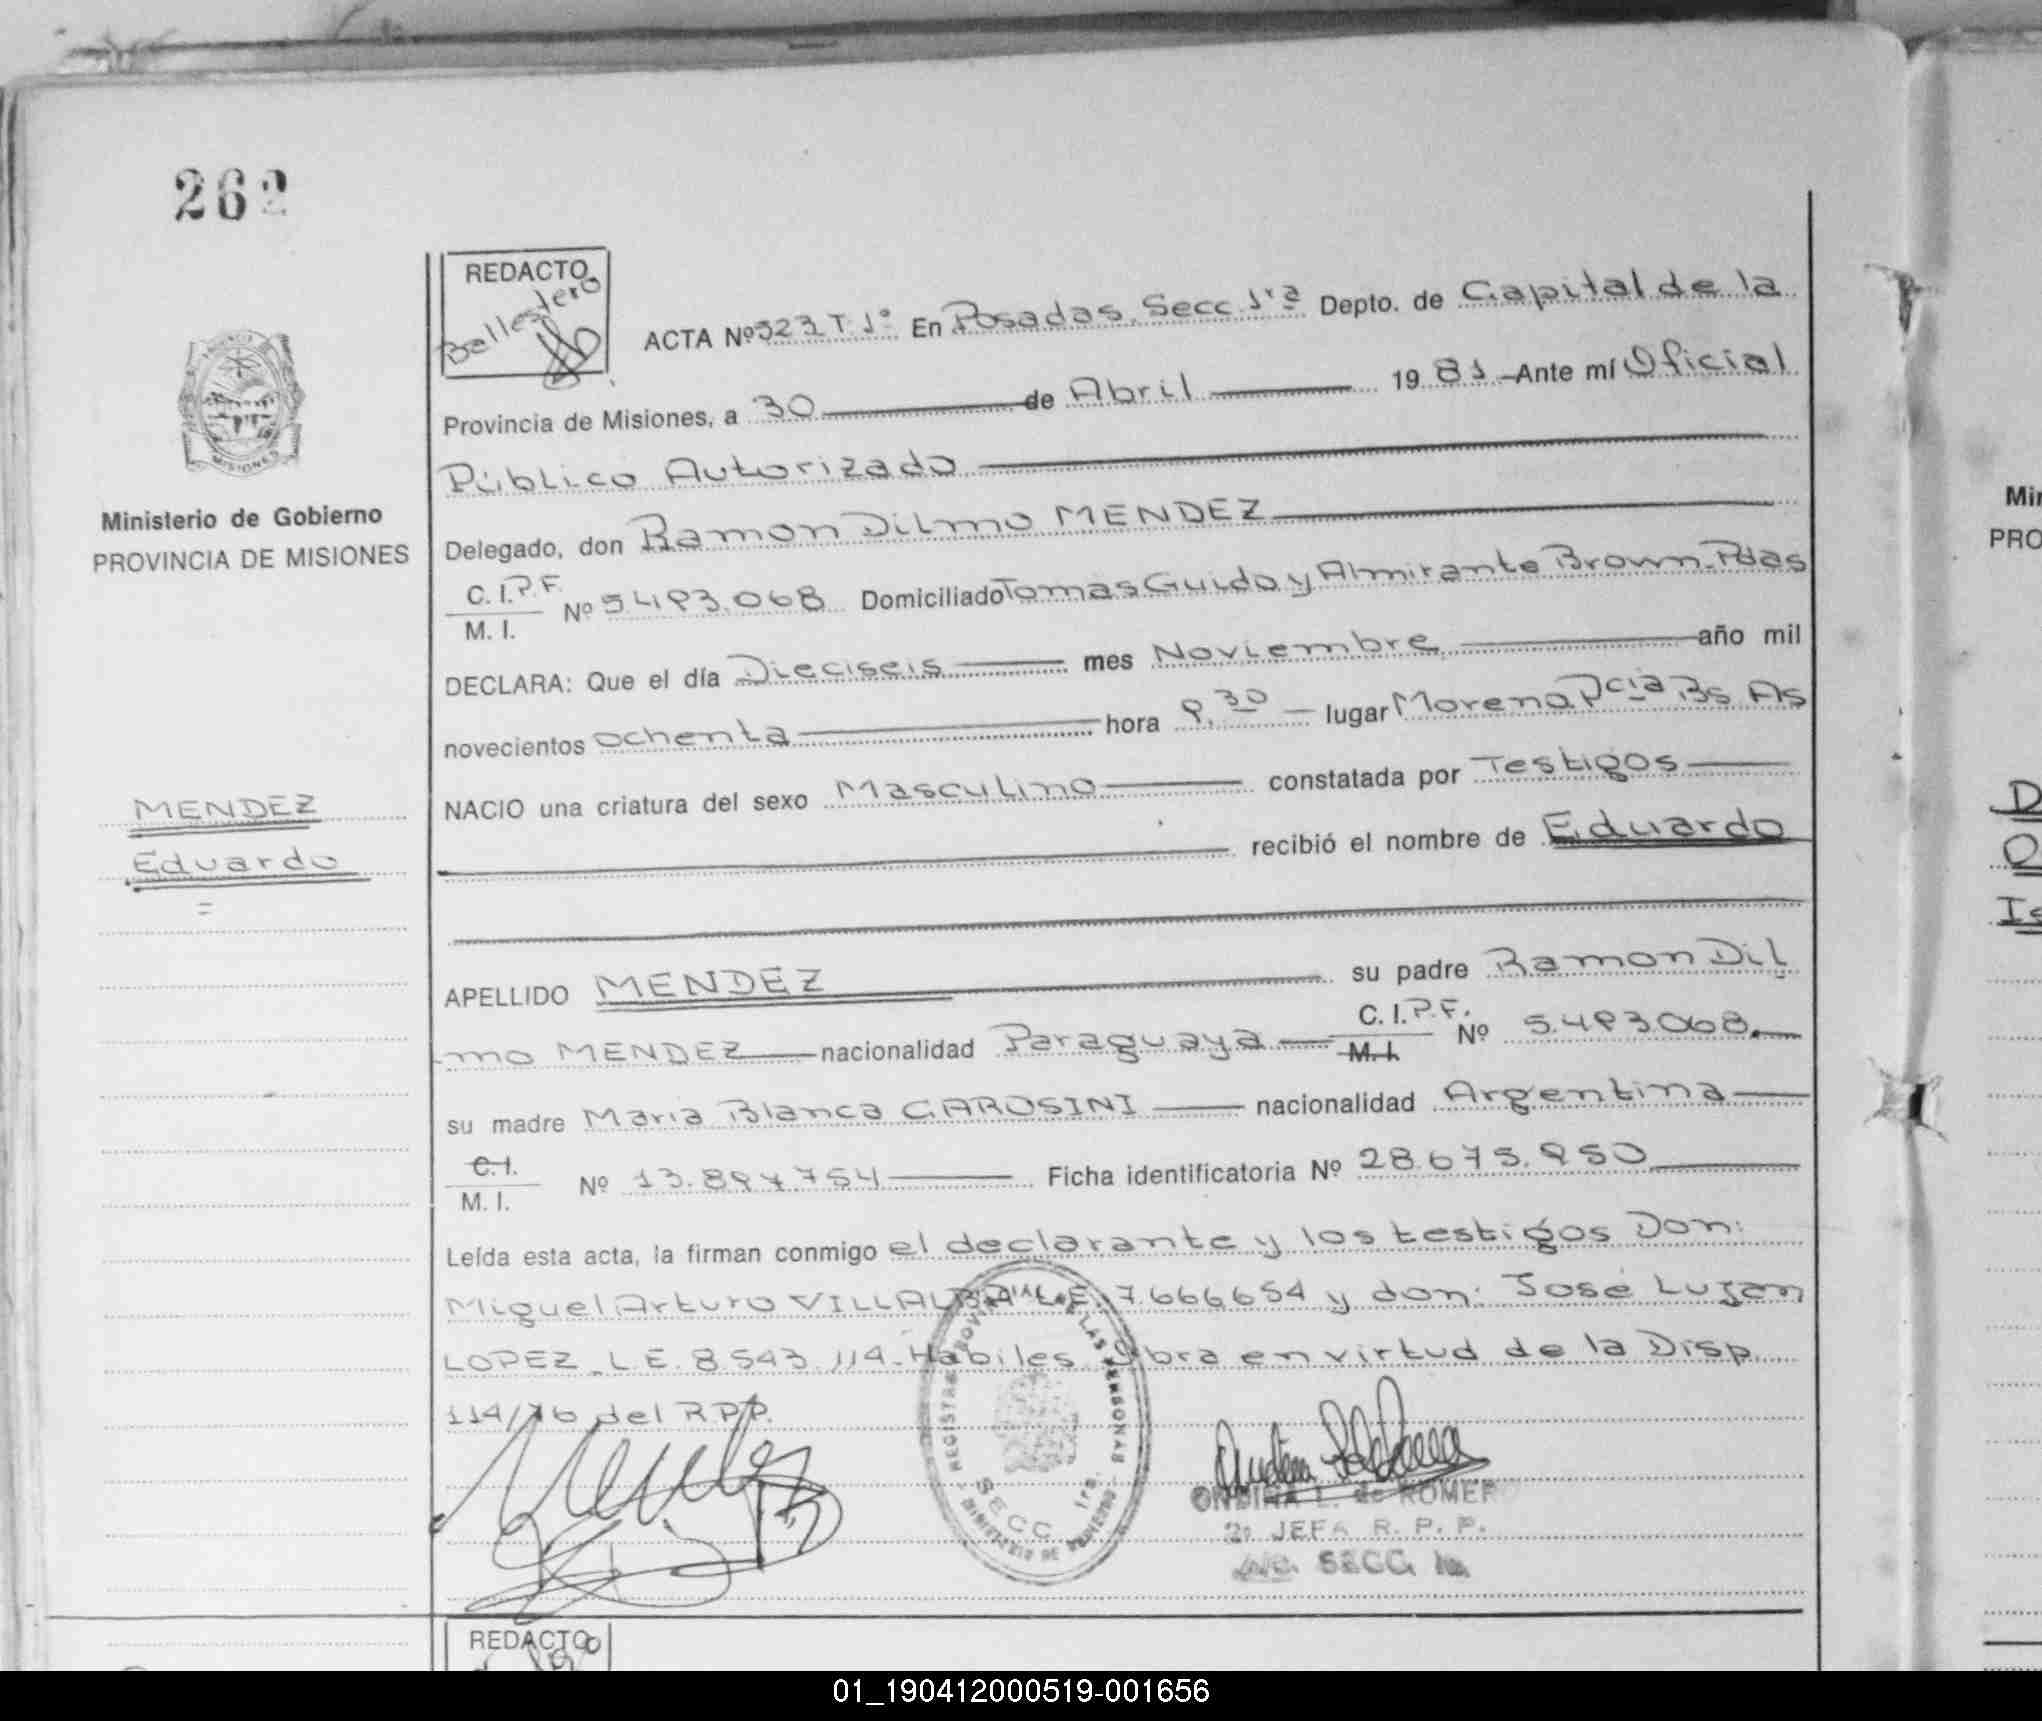 262
REDACTO
Ballestero
ACTA Nº 523 T. 1º En Posadas, Secc. 1ra Depto. de Capital de la
Provincia de Misiones, a 30 de Abril 19 81 Ante mí Oficial
Público Autorizado
Delegado, don Ramon Dilmo MENDEZ
C. I. P. F.
M. I. Nº 5.493.068 Domiciliado Tomas Guido y Almirante Brown-Pdas
DECLARA: Que el día Dieciseis mes Noviembre año mil
novecientos ochenta hora 9.30 lugar Moreno Pcia Bs As
NACIO una criatura del sexo Masculino constatada por Testigos
recibió el nombre de Eduardo
APELLIDO MENDEZ su padre Ramon Dil
mo MENDEZ nacionalidad Paraguaya C. I. P. F. M. I. Nº 5.493.068.
su madre Maria Blanca GAROSINI nacionalidad Argentina
C. I.
M. I. Nº 13.897.754 Ficha identificatoria Nº 28.675.950
Leída esta acta, la firman conmigo el declarante y los testigos Don:
Miguel Arturo VILLALBA L.E. 7.666654 y don: José Lujan
LOPEZ L.E. 8.543.114-Habiles Obra en virtud de la Disp.
114/76 del R.P.P.
REGISTRO PROVINCIAL DE LAS PERSONAS
SECC. 1ra.
MINISTERIO DE GOBIERNO
ONDINA L. de ROMERO
2º JEFA R. P. P.
SECC. 1a
MISIONES
Ministerio de Gobierno
PROVINCIA DE MISIONES
MENDEZ
Eduardo
REDACTO
Min
PRO
01_190412000519-001656